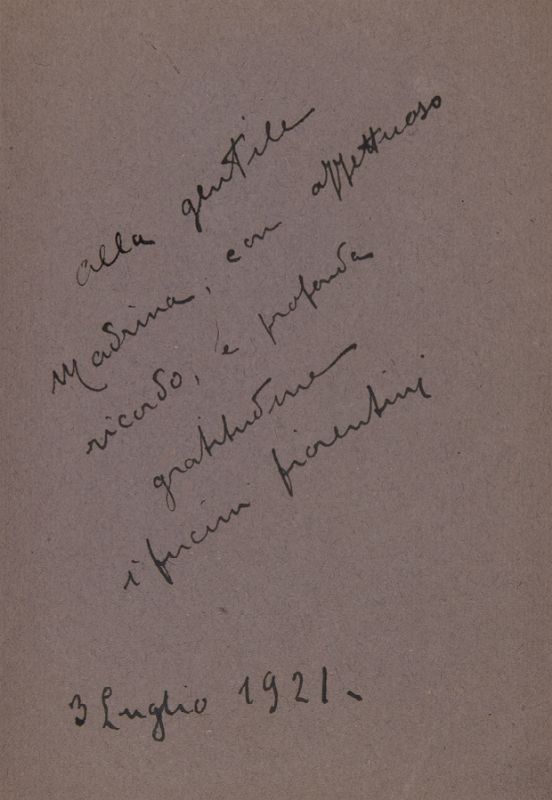 alla gentile
Madrina, con affettuoso
ricordo, e profonda
gratitudine
i fucini fiorentini
3 Luglio 1921.